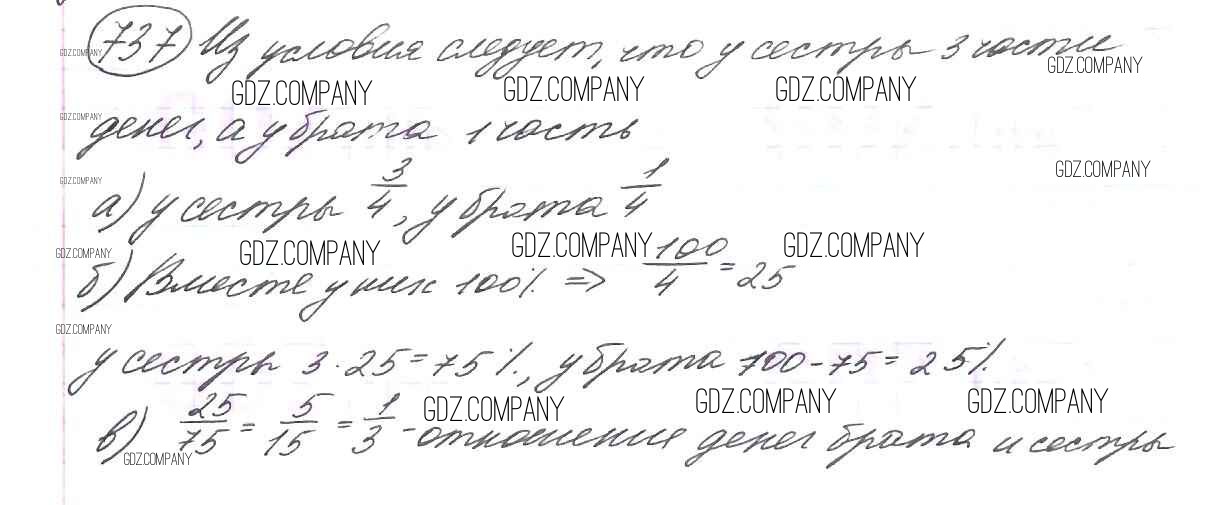 737 Из условия следует, что у сестры 3 части
GDZ.COMPANY GDZ.COMPANY GDZ.COMPANY GDZ.COMPANY GDZ.COMPANY
денег, а у брата 1 часть
GDZ.COMPANY
GDZ.COMPANY GDZ.COMPANY
а) у сестры 3/4, у брата 1/4
GDZ.COMPANY GDZ.COMPANY GDZ.COMPANY GDZ.COMPANY
б) Вместе у них 100% => 100/4 = 25
GDZ.COMPANY
у сестры 3 · 25 = 75%, у брата 100 - 75 = 25%
GDZ.COMPANY GDZ.COMPANY GDZ.COMPANY
в) 25/75 = 5/15 = 1/3 - отношение денег брата и сестры
GDZ.COMPANY